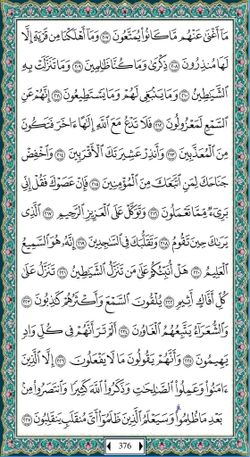 مَآ أَغْنَىٰ عَنْهُم مَّا كَانُوا۟ يُمَتَّعُونَ ٢٠٧ وَمَآ أَهْلَكْنَا مِن قَرْيَةٍ إِلَّا
لَهَا مُنذِرُونَ ٢٠٨ ذِكْرَىٰ وَمَا كُنَّا ظَـٰلِمِينَ ٢٠٩ وَمَا تَنَزَّلَتْ بِهِ
ٱلشَّيَـٰطِينُ ٢١٠ وَمَا يَنۢبَغِى لَهُمْ وَمَا يَسْتَطِيعُونَ ٢١١ إِنَّهُمْ عَنِ
ٱلسَّمْعِ لَمَعْزُولُونَ ٢١٢ فَلَا تَدْعُ مَعَ ٱللَّهِ إِلَـٰهًا ءَاخَرَ فَتَكُونَ
مِنَ ٱلْمُعَذَّبِينَ ٢١٣ وَأَنذِرْ عَشِيرَتَكَ ٱلْأَقْرَبِينَ ٢١٤ وَٱخْفِضْ
جَنَاحَكَ لِمَنِ ٱتَّبَعَكَ مِنَ ٱلْمُؤْمِنِينَ ٢١٥ فَإِنْ عَصَوْكَ فَقُلْ إِنِّى
بَرِىٓءٌ مِّمَّا تَعْمَلُونَ ٢١٦ وَتَوَكَّلْ عَلَى ٱلْعَزِيزِ ٱلرَّحِيمِ ٢١٧ ٱلَّذِى
يَرَىٰكَ حِينَ تَقُومُ ٢١٨ وَتَقَلُّبَكَ فِى ٱلسَّـٰجِدِينَ ٢١٩ إِنَّهُۥ هُوَ ٱلسَّمِيعُ
ٱلْعَلِيمُ ٢٢٠ هَلْ أُنَبِّئُكُمْ عَلَىٰ مَن تَنَزَّلُ ٱلشَّيَـٰطِينُ ٢٢١ تَنَزَّلُ عَلَىٰ
كُلِّ أَفَّاكٍ أَثِيمٍ ٢٢٢ يُلْقُونَ ٱلسَّمْعَ وَأَكْثَرُهُمْ كَـٰذِبُونَ ٢٢٣
وَٱلشُّعَرَآءُ يَتَّبِعُهُمُ ٱلْغَاوُۥنَ ٢٢٤ أَلَمْ تَرَ أَنَّهُمْ فِى كُلِّ وَادٍ
يَهِيمُونَ ٢٢٥ وَأَنَّهُمْ يَقُولُونَ مَا لَا يَفْعَلُونَ ٢٢٦ إِلَّا ٱلَّذِينَ
ءَامَنُوا۟ وَعَمِلُوا۟ ٱلصَّـٰلِحَـٰتِ وَذَكَرُوا۟ ٱللَّهَ كَثِيرًا وَٱنتَصَرُوا۟ مِنۢ
بَعْدِ مَا ظُلِمُوا۟ وَسَيَعْلَمُ ٱلَّذِينَ ظَلَمُوٓا۟ أَىَّ مُنقَلَبٍ يَنقَلِبُونَ ٢٢٧
376